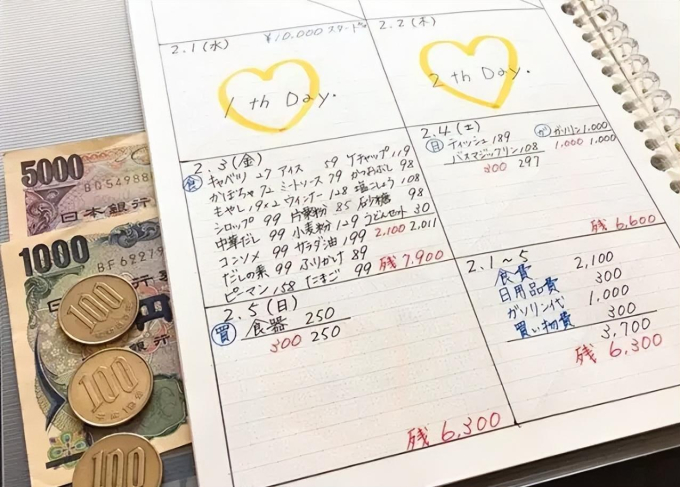 2.1(水)
¥10,000 スタート
1 th Day.
2.2(木)
2 th Day.
2.3(金)
食
キャベツ 27 アイス 59 ケチャップ 119
かぼちゃ 72 ミートソース 79 かつおぶし 98
もやし 19×2 ウィンナー 128 塩こしょう 108
シロップ 99 片栗粉 85 砂糖 98
中華だし 99 小麦粉 129 うどんセット 30
コンソメ 99 サラダ油 199 2,100 2,011
だしの素 99 ふりかけ 89
ピーマン 158 たまご 99 残 7,900
2.4(土)
日 ティッシュ 189
バスマジックリン 108
300 297
ガ ガソリン 1,000
1,000 1,000
残 6,600
2.5(日)
買 食器 250
300 250
残 6,300
2.1~5
食費 2,100
日用品費 300
ガソリン代 1,000
買い物費 300
3,700
残 6,300
5000
日本銀行
1000
日本銀行
円
100
100
100